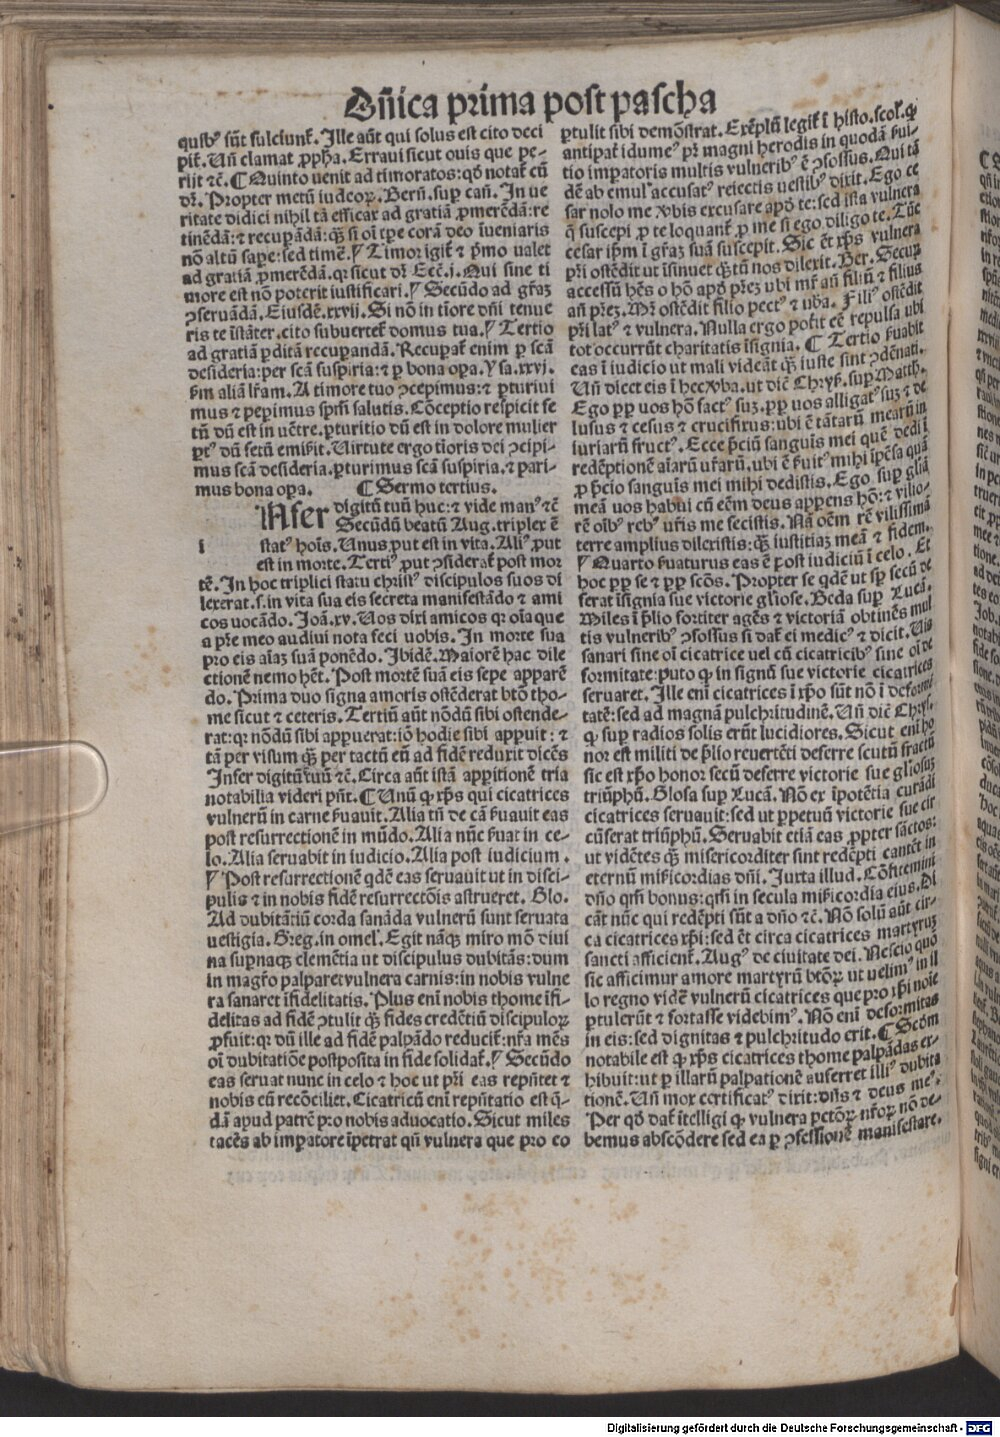 Dñica prima post pascha
quibꝰ sũt fulciunt̃. Ille aũt qui solus est cito deci
pit̃. Uñ clamat ꝓpħa. Erraui sicut ouis que pe-
rijt ⁊c̃. ¶ Quinto uenit ad timoratos: qđ notat̃ cũ
dr̃. Propter metũ iudeoꝝ. Berñ. suꝑ cañ. In ue
ritate didici nihil tã efficax ad gratiã ꝓmerẽdã: re
tinẽdã: ⁊ recuꝑãdã: qꝫ si oĩ tꝑe corã deo ĩueniaris
nõ altũ saꝑe: sed timẽ. Timor igit̃ ⁊ pͥmo ualet
ad gratiã ꝓmerẽdã. qꝛ sicut dr̃ Ecc̃.j. Qui sine ti
more est nõ poterit iustificari. Secũdo ad gr̃az
ꝯseruãdã. Eiusdẽ.xxvij. Si nõ in tiore dñi tenue
ris te ĩstãter. cito subuertet̃ domus tua. Tertio
ad gratiã ꝑditã recuꝑandã. Recuꝑat̃ enim ꝑ scã
desideria: per scã suspiria: ⁊ ꝑ bona oꝑa. Ysa.xxvj.
ẜm aliã lr̃am. A timore tuo ꝯcepimus: ⁊ ꝑturiui
mus ⁊ peꝑimus sp̃m salutis. Cõceptio respicit fe
tũ dũ est in uẽtre. ꝑturitio dũ est in dolore mulier
ꝑtꝰ dũ fetũ emittit. Uirtute ergo tioris dei ꝯcipi-
mus scã desideria. ꝑturimus scã suspiria. ⁊ pari-
mus bona oꝑa. ¶ Sermo tertius.
i Nfer digitũ tuũ huc: ⁊ vide manꝰ ⁊c̃
Secũdũ beatũ Aug. triplex ẽ
statꝰ hoĩs. Unus ꝓut est in vita. Aliꝰ ꝓut
est in morte. Tertiꝰ ꝓut ꝯsiderat̃ post mor
tẽ. In hoc triplici statu christꝰ discipulos suos di
lexerat. s. in vita sua eis secreta manifestãdo ⁊ ami
cos uocãdo. Joã.xv. Uos dixi amicos qꝛ oĩa que
a pr̃e meo audiui nota feci uobis. In morte sua
pro eis aĩaz suã ponẽdo. Ibidẽ. Maiorẽ hac dile
ctionẽ nemo hẽt. Post mortẽ suã eis sepe apparẽ
do. Prima duo signa amoris ostẽderat btõ tho-
me sicut ⁊ ceteris. Tertiũ aũt nõdũ sibi ostende-
rat: qꝛ nõdũ sibi apꝑuerat: iõ hodie sibi apꝑuit: ⁊
tã per visum qꝫ per tactũ eũ ad fidẽ reduxit dicẽs
Infer digitũ tuũ ⁊c̃. Circa aũt istã apꝑitionẽ tria
notabilia videri pñt. ¶ Unũ ꝙ xp̃s qui cicatrices
vulnerũ in carne ẜuauit. Alia tñ de cã ẜuauit eas
post resurrectionẽ in mũdo. Alia nũc ẜuat in ce-
lo. Alia seruabit in iudicio. Alia post iudicium.
Post resurrectionẽ qdẽ eas seruauit ut in disci-
pulis ⁊ in nobis fidẽ resurrectõis astrueret. Glo.
Ad dubitãtiũ corda sanãda vulnerũ sunt seruata
uestigia. Greg. in omeł. Egit nãqꝫ miro mõ diui
na suꝑnaqꝫ clemẽtia ut discipulus dubitãs: dum
in magr̃o palparet vulnera carnis: in nobis vulne
ra sanaret ĩfidelitatis. Plus eni nobis thome ĩfi-
delitas ad fidẽ ꝯtulit qꝫ fides credẽtiũ discipuloꝝ
ꝓfuit: qꝛ dũ ille ad fidẽ palpãdo reducit̃: nr̃a mẽs
oĩ dubitatiõe postposita in fide solidat̃. Secũdo
eas seruat nunc in celo ⁊ hoc ut pr̃i eas rep̃ntet ⁊
nobis eũ recõciliet. Cicatricũ eni rep̃ntatio est q̃-
dã apud patrẽ pro nobis aduocatio. Sicut miles
tacẽs ab imꝑatore ĩpetrat qñ vulnera que pro eo
ꝑtulit sibi demõstrat. Exẽplũ legit̃ ĩ histo. scoł. ꝙ
antipat̃ idumeꝰ pr̃ magni herodis in quodã ẜui-
tio imꝑatoris multis vulneribꝰ ẽ ꝯfossus. Qui tã
dẽ ab emuł accusatꝰ reiectis uestibꝰ dixit. Ego ce
sar nolo me v̾bis excusare apđ te: sed ista vulnera
q̃ suscepi ꝓ te loquant̃ ꝓ me si ego diligo te. Tũc
cesar ip̃m ĩ gr̃az suã suscepit. Sic ẽt xp̃s vulnera
pr̃i ostẽdit ut ĩsinuet qꝫtũ nos dilexit. Ber. Securꝫ
accessũ hẽs o hõ apđ pr̃ez ubi mr̃ añ filiũ ⁊ filius
añ pr̃ez. Mr̃ ostẽdit filio pectꝰ ⁊ uba. Filiꝰ ostẽdit
pr̃i latꝰ ⁊ vulnera. Nulla ergo potit eẽ repulsa ubi
tot occurrũt charitatis ĩsignia. ¶ Tertio ẜuabit
eas ĩ iudicio ut mali videãt qꝫ iuste sint ꝯdẽnati.
Uñ dicet eis ĩ hec v̾ba. ut dic̃ Chryẜ. suꝑ Matth.
Ego ꝓp uos hõ factꝰ suz. ꝓp uos alligatꝰ suz ⁊ de
lusus ⁊ cesus ⁊ crucifixus: ubi ẽ tãtarũ mearũ in
iuriarũ fructꝰ. Ecce p̃ciũ sanguis mei quẽ dedi ĩ
redẽptionẽ aĩarũ ur̃arũ. ubi ẽ ẜuitꝰ mihi ĩpẽsa quã
ꝓ p̃cio sanguis mei mihi dedistis. Ego suꝑ gliã
meã uos habui cũ eẽm deus apꝑens hõ: ⁊ vilio-
rẽ oĩbꝰ rebꝰ ur̃is me fecistis. Nã oẽm rẽ vilissimã
terre amplius dilexistis: qꝫ iustitiaz meã ⁊ fidem.
Quarto ẜuaturus eas ẽ post iudiciũ ĩ celo. Et
hoc ꝓp se ⁊ ꝓp scõs. Propter se qdẽ ut sꝑ secũ de
ferat ĩsignia sue victorie gliose. Beda suꝑ Lucã.
Miles ĩ p̃lio fortiter agẽs ⁊ victoriã obtinẽs mul
tis vulneribꝰ ꝯfossus si dat̃ ei medicꝰ ⁊ dicit. Uis
sanari sine oĩ cicatrice uel cũ cicatricibꝰ sine oĩ de
formitate: puto ꝙ in signũ sue victorie cicatrices
seruaret. Ille eni cicatrices ĩ xp̃o sũt nõ ĩ deformi
tatẽ: sed ad magnã pulchritudinẽ. Uñ dic̃ Chryẜ.
ꝙ suꝑ radios solis erũt lucidiores. Sicut eni ho
nor est militi de p̃lio reuertẽti deferre scutũ fractũ
sic est xp̃o honor secũ deferre victorie sue gliosuz
triũphũ. Glosa suꝑ Lucã. Nõ ex ĩpotẽtia curãdi
cicatrices seruauit: sed ut ꝑpetuũ victorie sue cir
cũferat triũphũ. Seruabit etiã eas ꝓpter sãctos:
ut vidẽtes qꝫ misericorditer sint redẽpti cantẽt in
eternũ mi꜀icordias dñi. Juxta illud. Cõfitemini
dño qm̃ bonus: qm̃ in secula mi꜀icordia eius. Di
cãt nũc qui redẽpti sũt a dño ⁊c̃. Nõ solũ aũt cir-
ca cicatrices xp̃i: sed ẽt circa cicatrices martyruꝫ
sancti afficient̃. Augꝰ de ciuitate dei. Nescio quõ
sic afficimur amore martyrũ btõꝝ ut uelimꝰ in il
lo regno vidẽ vulnerũ cicatrices que pro xp̃i noĩe
ꝑtulerũt ⁊ fortasse videbimꝰ. Nõ eni deformitas
in eis: sed dignitas ⁊ pulchritudo erit. ¶ Scđm
notabile est ꝙ xp̃s cicatrices thome palpãdas ex-
hibuit: ut ꝑ illarũ palpationẽ auferret illiꝰ dubita
tionẽ. Uñ mox certificatꝰ dixit: dñs ⁊ deus meꝰ.
Per qđ dat̃ ĩtelligi ꝙ vulnera pctõꝝ nr̃oꝝ nõ de-
bemus abscõdere sed ea ꝑ ꝯfessionẽ manifestare.
Digitalisierung gefördert durch die Deutsche Forschungsgemeinschaft - DFG